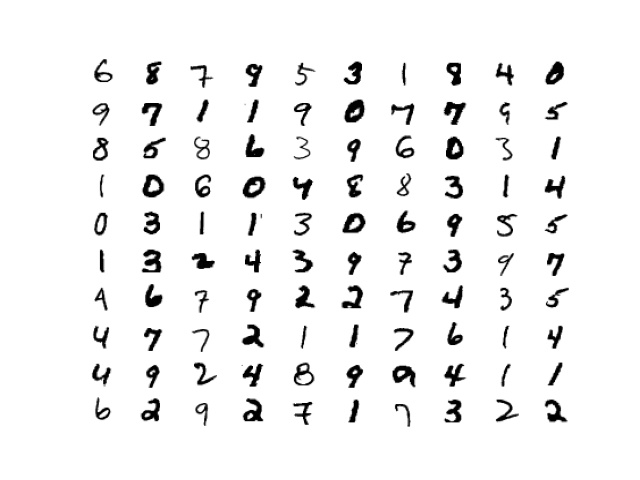 6 8 7 9 5 3 1 8 4 0
9 7 1 1 9 0 7 7 9 5
8 5 8 6 3 9 6 0 3 1
1 0 6 0 4 8 8 3 1 4
0 3 1 1 3 0 6 9 5 5
1 3 2 4 3 9 7 3 9 7
4 6 7 9 2 2 7 4 3 5
4 7 7 2 1 1 7 6 1 4
4 9 2 4 8 9 9 4 1 1
6 2 9 2 7 1 7 3 2 2